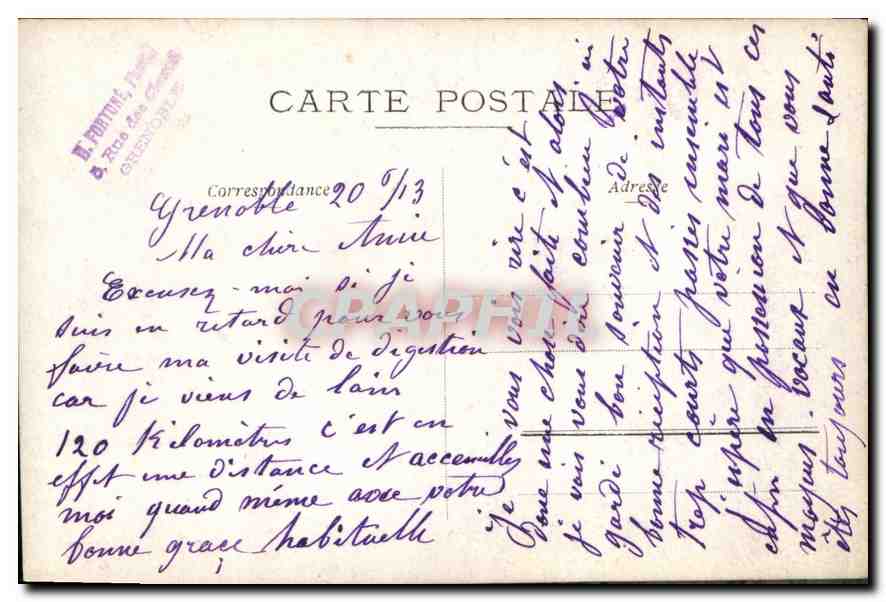 M. FORTUNÉ,
5, Rue des
GRENOBLE
CARTE POSTALE
Correspondance
Adresse
Grenoble 20 /13
Ma chère Amie
Excusez-moi si je
suis en retard pour vous
faire ma visite de digestion
car je viens de loin
120 Kilomètres c'est en
effet une distance et acceuillez
moi quand même avec votre
bonne grâce habituelle
Je vous vois rire c'est
donc une chose faite et alors
je vais vous dire combien j'ai
gardé bon souvenir de votre
bonne réception et des instants
trop courts passés ensemble
J'espère que votre mari est
enfin en possession de tous ces
moyens vocaux et que vous
êtes toujours en bonne santé
CRAPHIL